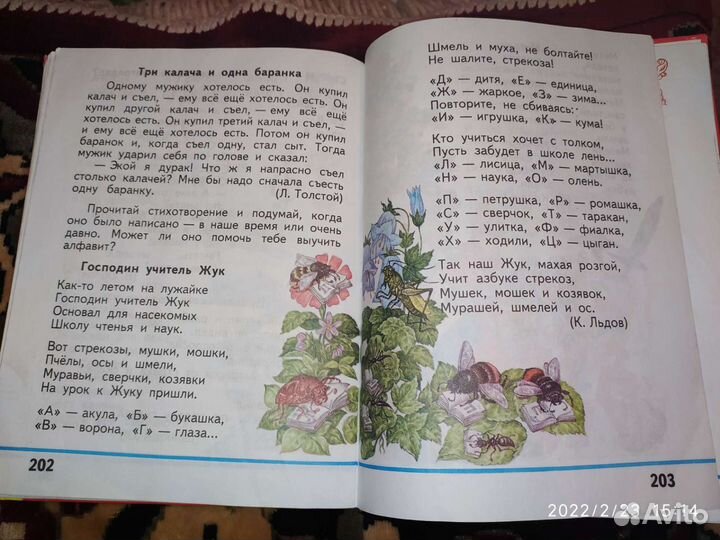 Три калача и одна баранка
Одному мужику хотелось есть. Он купил
калач и съел, — ему всё ещё хотелось есть. Он
купил другой калач и съел, — ему всё ещё
хотелось есть. Он купил третий калач и съел, —
и ему всё ещё хотелось есть. Потом он купил
баранок и, когда съел одну, стал сыт. Тогда
мужик ударил себя по голове и сказал:
— Экой я дурак! Что ж я напрасно съел
столько калачей? Мне бы надо сначала съесть
одну баранку.
(Л. Толстой)
Прочитай стихотворение и подумай, когда
оно было написано — в наше время или очень
давно. Может ли оно помочь тебе выучить
алфавит?
Господин учитель Жук
Как-то летом на лужайке
Господин учитель Жук
Основал для насекомых
Школу чтенья и наук.
Вот стрекозы, мушки, мошки,
Пчёлы, осы и шмели,
Муравьи, сверчки, козявки
На урок к Жуку пришли.
«А» — акула, «Б» — букашка,
«В» — ворона, «Г» — глаза...
202
Шмель и муха, не болтайте!
Не шалите, стрекоза!
«Д» — дитя, «Е» — единица,
«Ж» — жаркое, «З» — зима...
Повторите, не сбиваясь:
«И» — игрушка, «К» — кума!
Кто учиться хочет с толком,
Пусть забудет в школе лень...
«Л» — лисица, «М» — мартышка,
«Н» — наука, «О» — олень.
«П» — петрушка, «Р» — ромашка,
«С» — сверчок, «Т» — таракан,
«У» — улитка, «Ф» — фиалка,
«Х» — ходили, «Ц» — цыган.
Так наш Жук, махая розгой,
Учит азбуке стрекоз,
Мушек, мошек и козявок,
Мурашей, шмелей и ос.
(К. Льдов)
203
2022/2/23 15:14
Avito